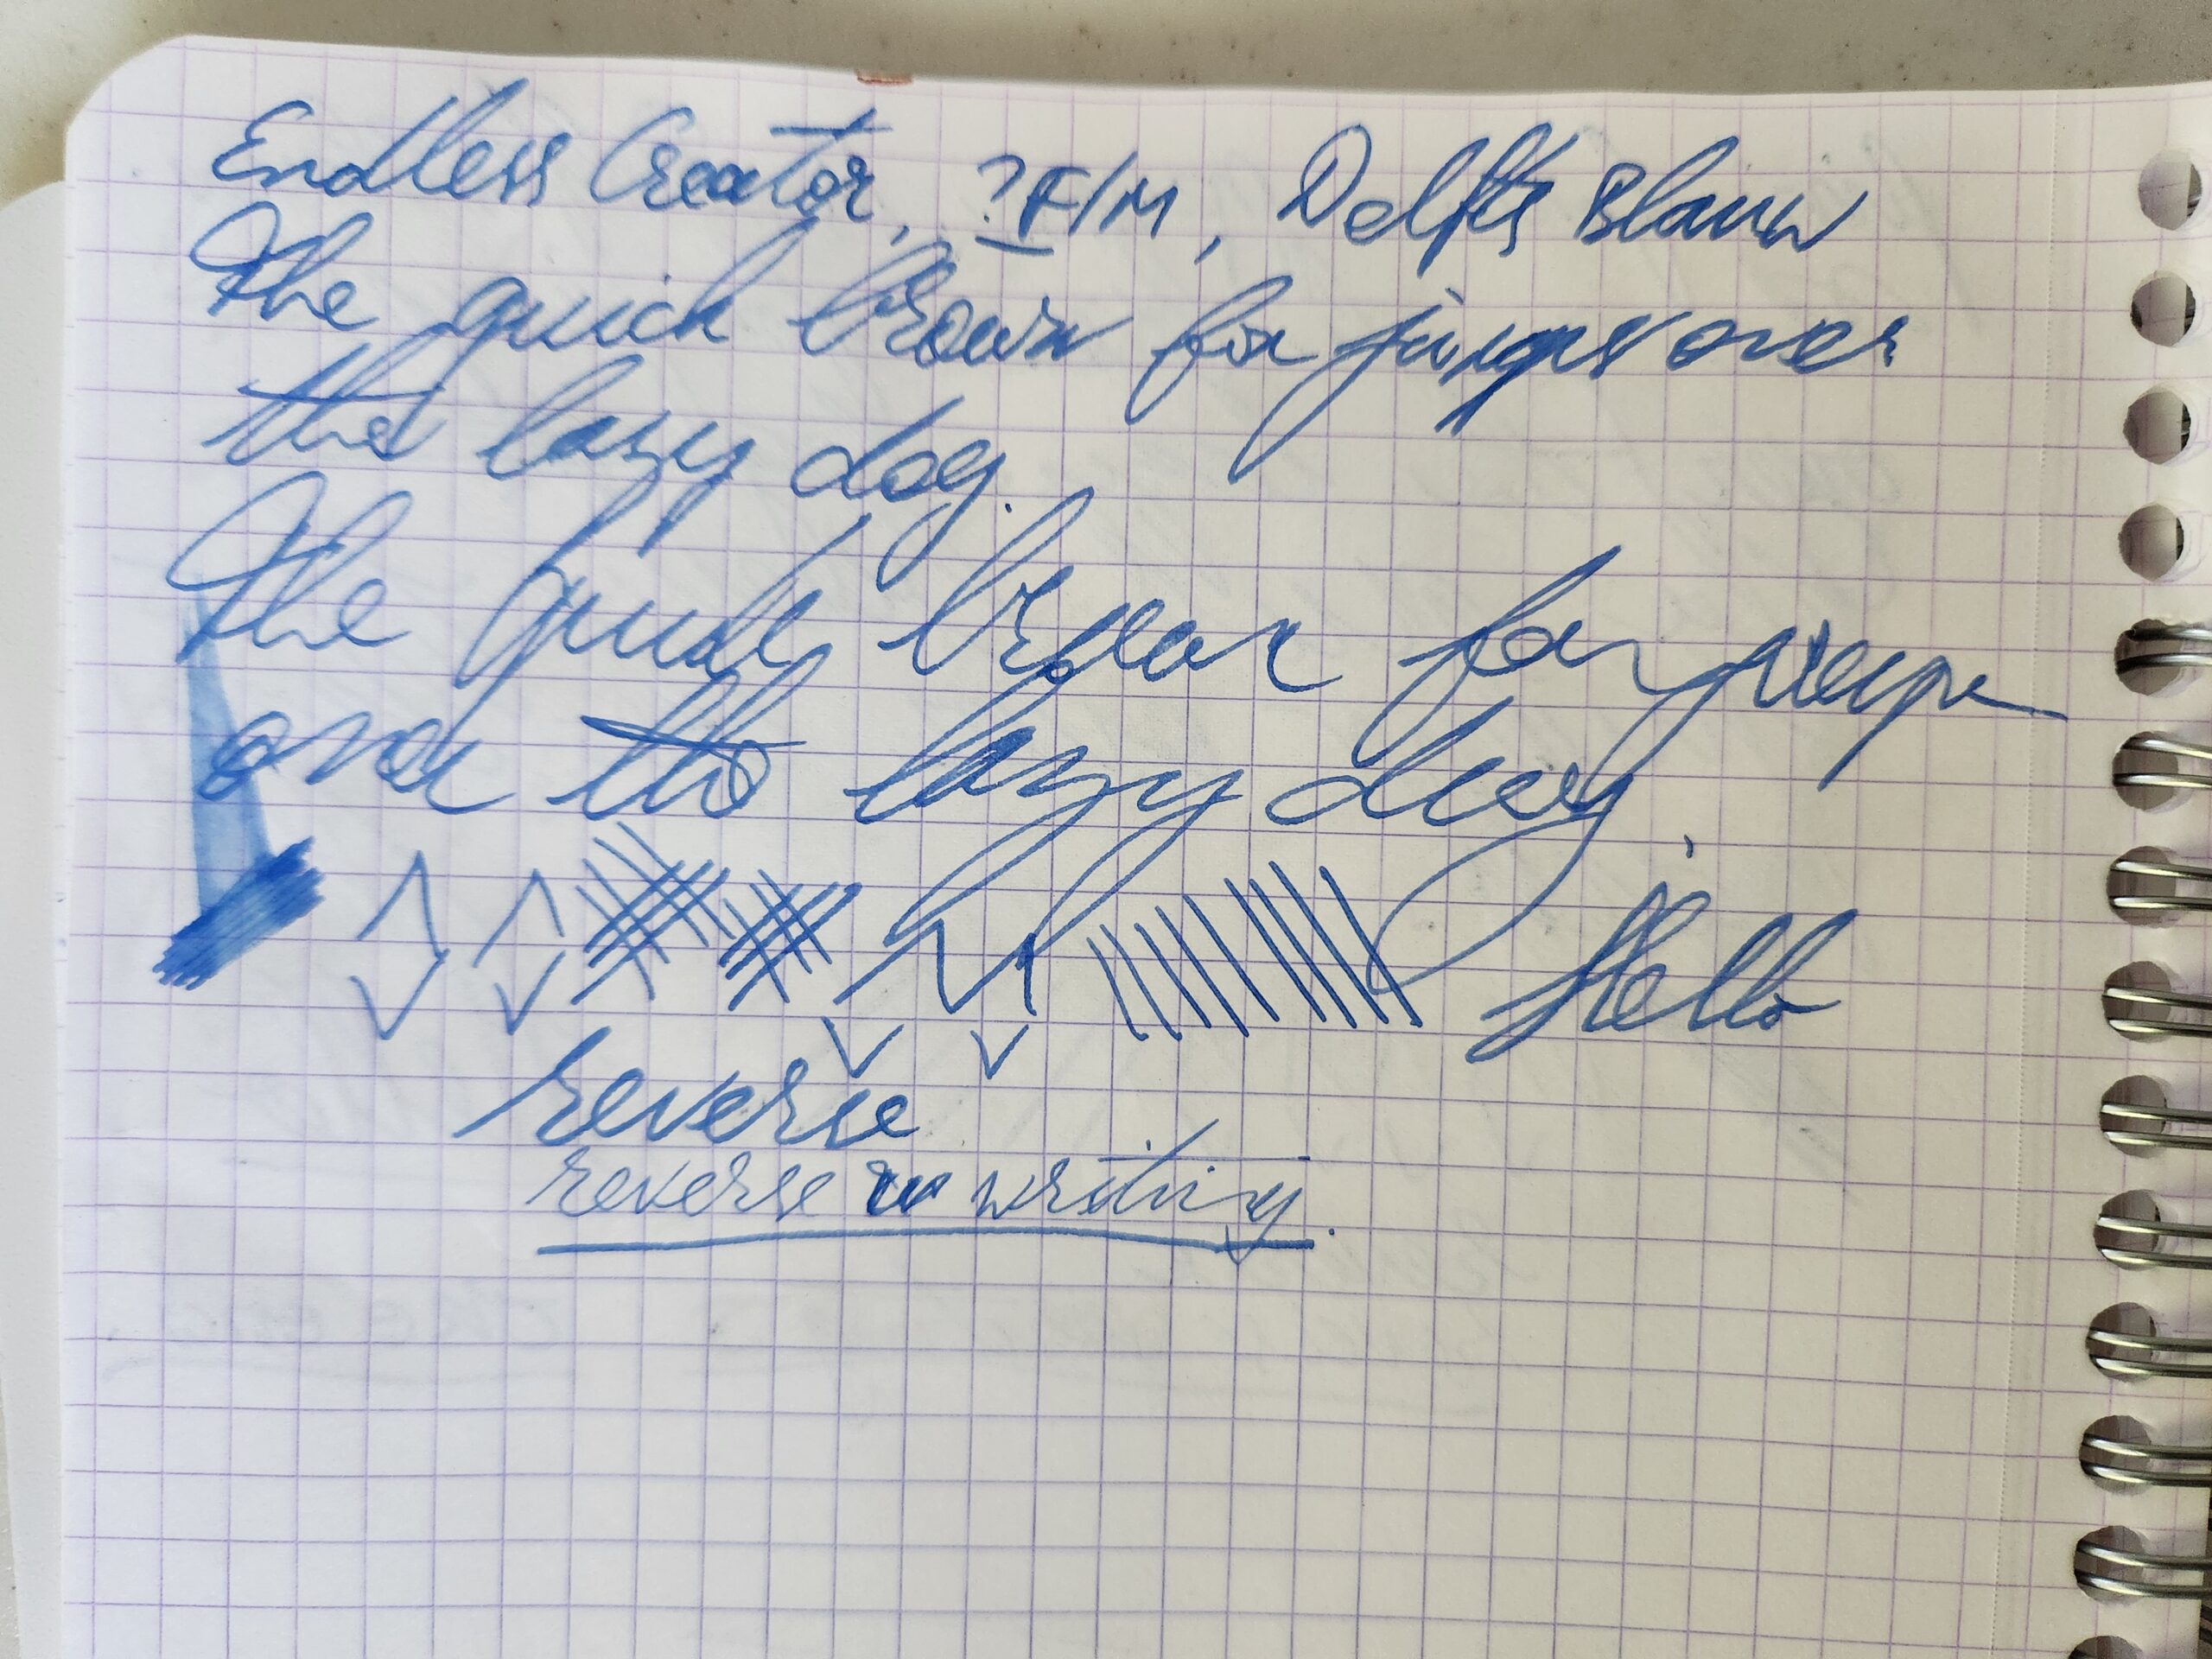 Endless Creator, ?F/M, Delfts Blauw
The quick brown fox jumps over
the lazy dog.
The quick brown fox
and the lazy dog.
Hello
reverse
reverse writing.